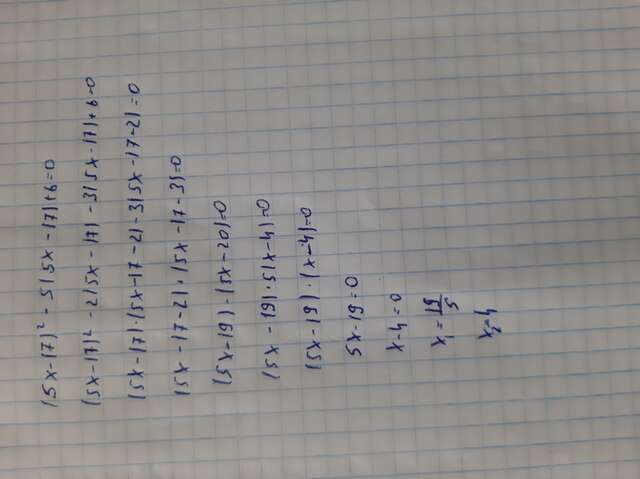 (5x-17)² - 5(5x-17)+6=0
(5x-17)² - 2(5x-17) - 3(5x-17)+6=0
(5x-17)·(5x-17-2)-3(5x-17-2)=0
(5x-17-2)·(5x-17-3)=0
(5x-19)·(5x-20)=0
(5x-19)·5(x-4)=0
(5x-19)·(x-4)=0
5x-19=0
x-4=0
x₁=19/5
x₂=4